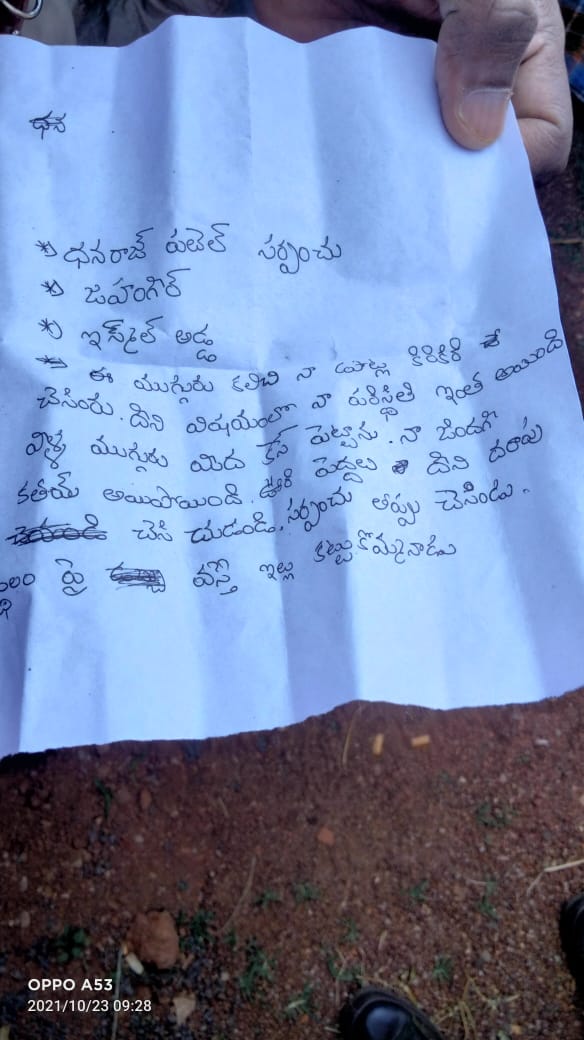 * ధనరాజ్ పటెల్ సర్పంచు
* జహంగిర్
* ఇస్మైల్ అడ్డ
ఈ ముగ్గురు కలిచి నా కిరికిరి
చేసింరు. దిని విషయంలొ నా పరిస్థితి ఇంత అయింది
ముగ్గురు మిద కేస్ పెట్టాను. నా జిందగి
కతమ్ అయిపొయింది. ఊరి పెద్దలు దిని దరాపు
చెసి చుడండి. సర్పంచు తీప్పు చెసిండు.
వస్తే ఇల్లు కట్టుకొమ్మనాడు
OPPO A53
2021/10/23 09:28